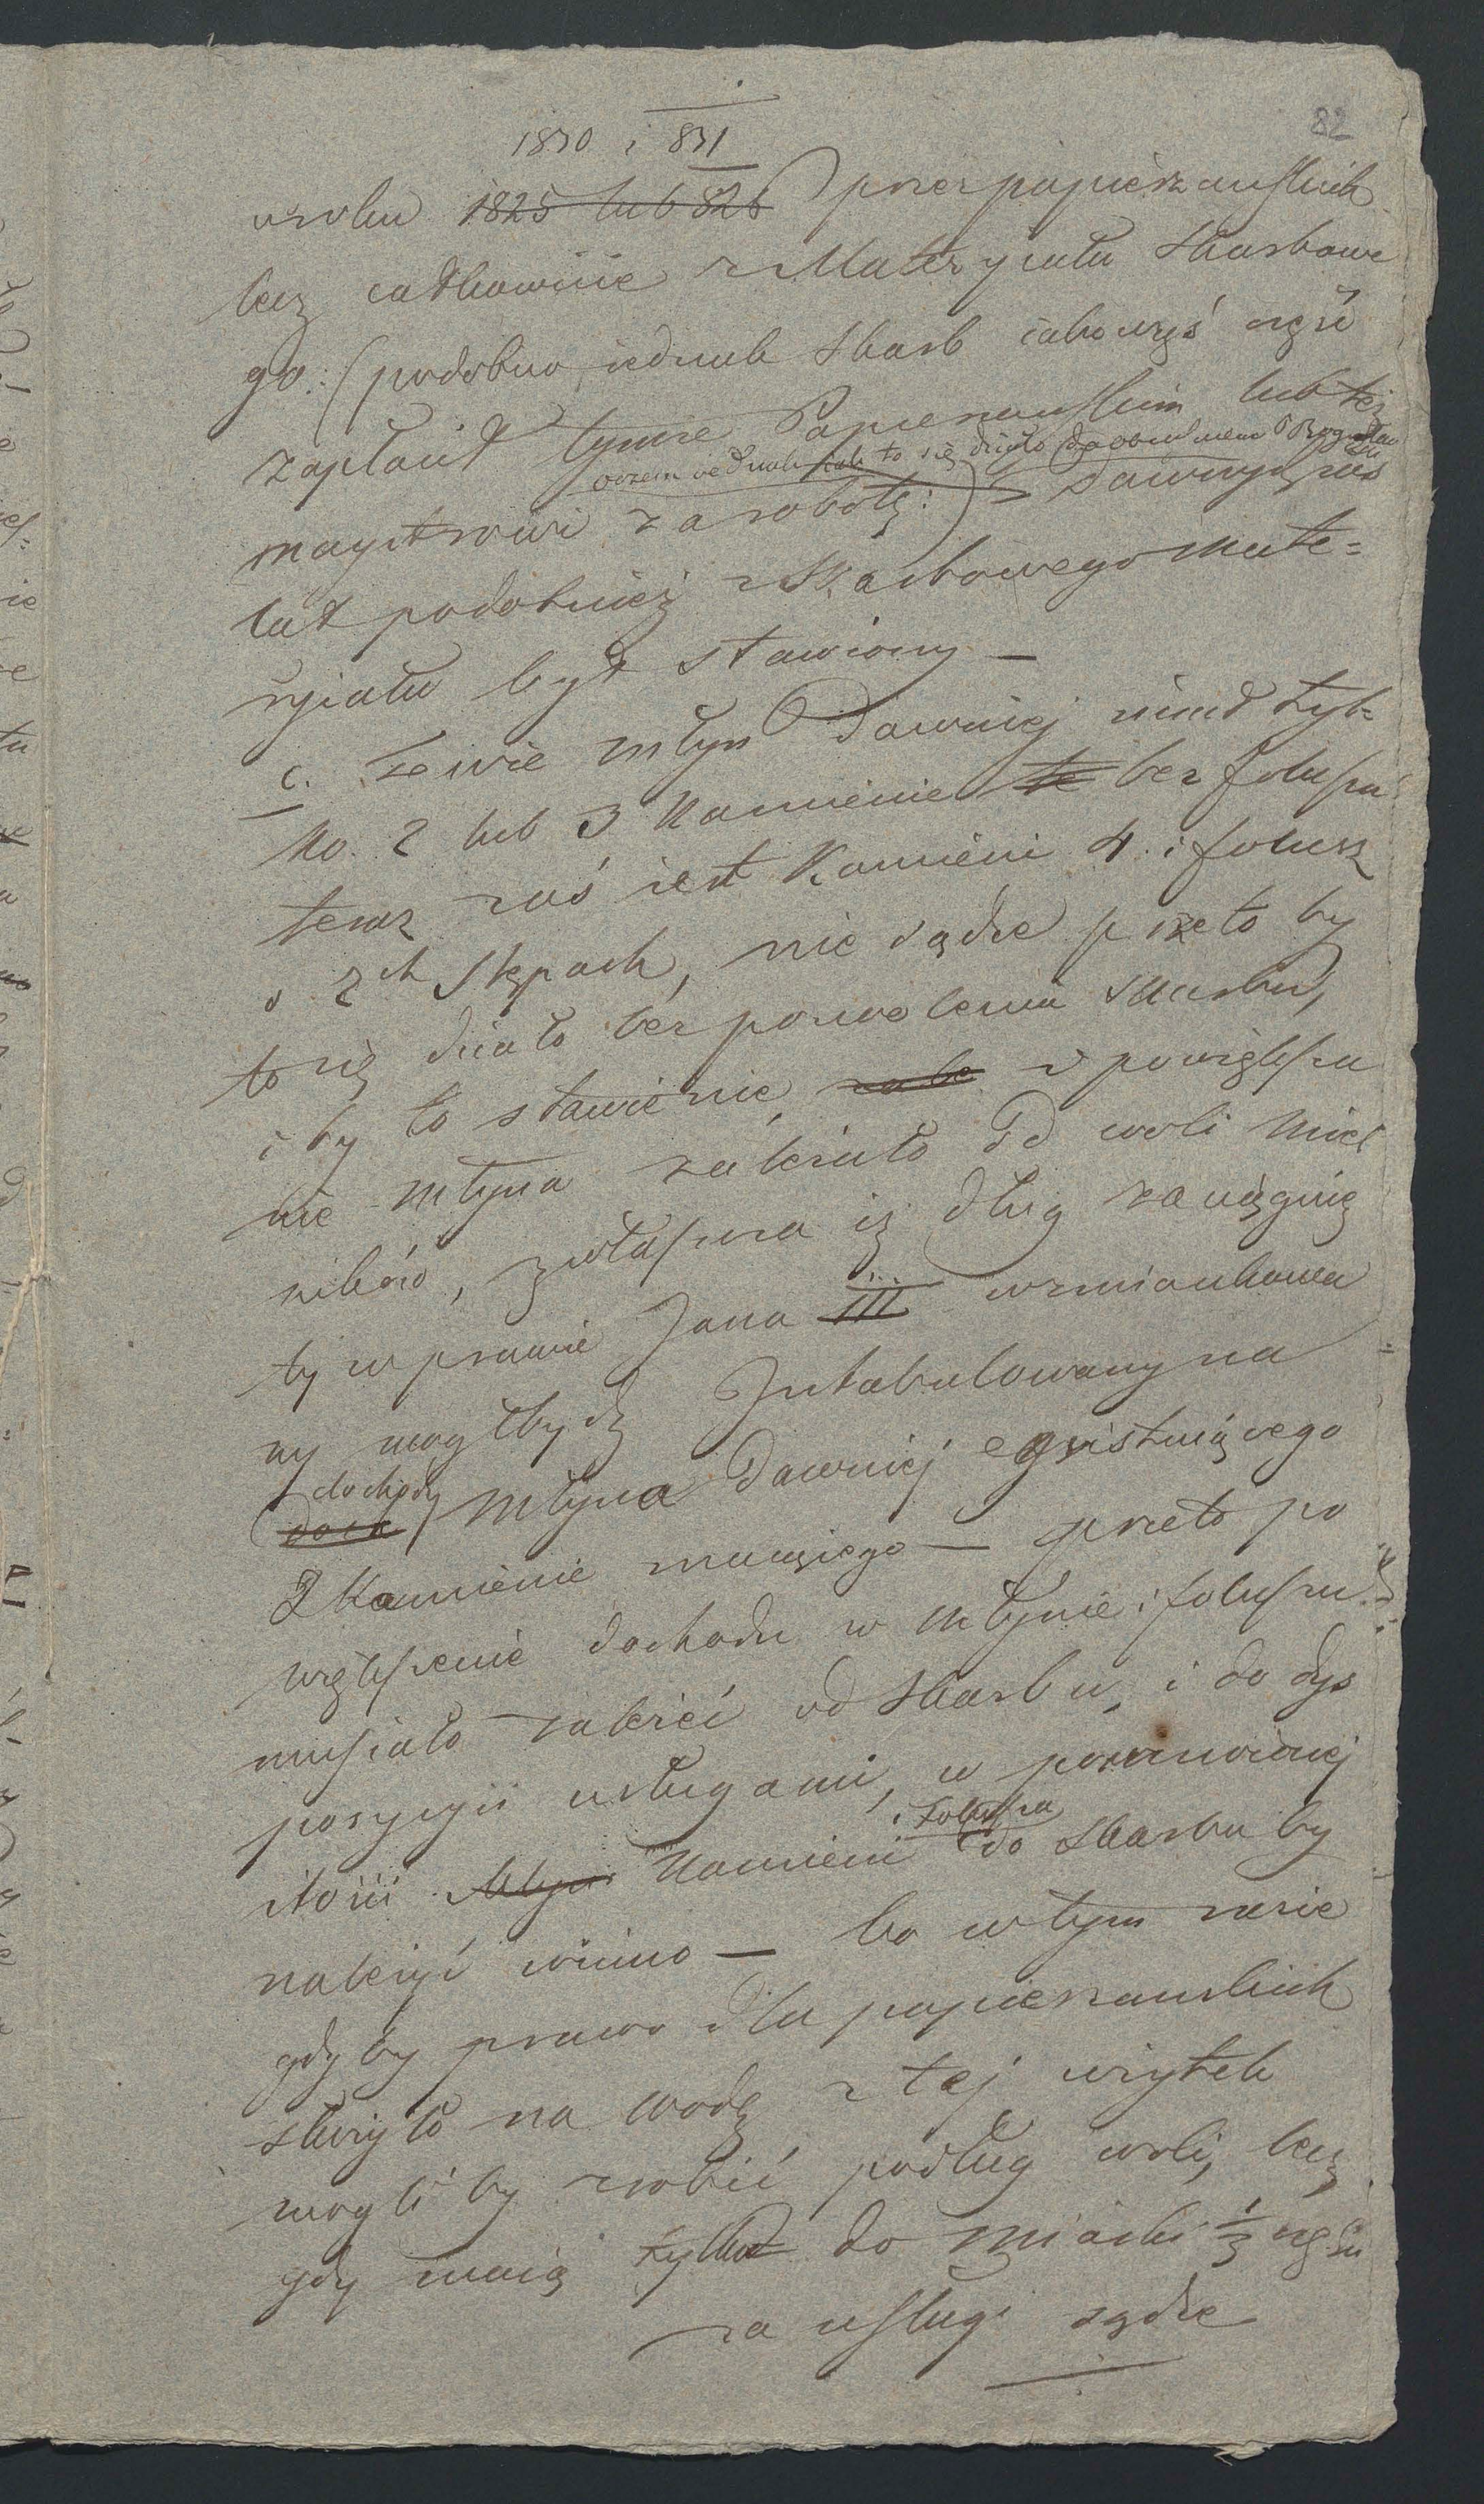 82
1830 i 831
w roku 1825 lub 826 przez papiernauskich
lecz całkowicie z Materyiału Skarbowe
go: (podobno jednak Skarb jakowąś część
zapłacił tymże Papiernauskim lub też
wszem jednak jak to się działo
majstrowi za robotę:) Dawnych zaś
lat podobnież z Skarbowego Mate=
ryiału był stawiony —
c. Że wie młyn Dawniej miał tyl=
ko 2 lub 3 Kamienie te bez folusza
teraz zaś jest Kamieni 4. i folusz
o 2ch Stępach, nie sądzę przeto by
to się działo bez pozwolenia Skarbu,
i by to stawienie i powiększe
nie młyna zależało od woli Mieł
ników, zwłaszcza iż dług zaciągnię
ty w prawie Jana III wzmiankowa
ny mógł bydź Intabulowany na
dochody
doch młyna Dawniej egzistuiącego
2 Kamienie maiącego — przeto po
większenie dochodu w młynie i foluszu
musiało zależeć od Skarbu, i do dys
pozycyii usługami, w postanowioney
i Folusza
ilości Młyn Kamieni do Skarbu by
należyć winno — bo w tym razie
gdyby prawo dla papiernauskich
służyło na wodę z tej użytek
mogli by robić podług woli, lecz
gdy maią tylko do miarki 1/3 część
za usługi sądzę